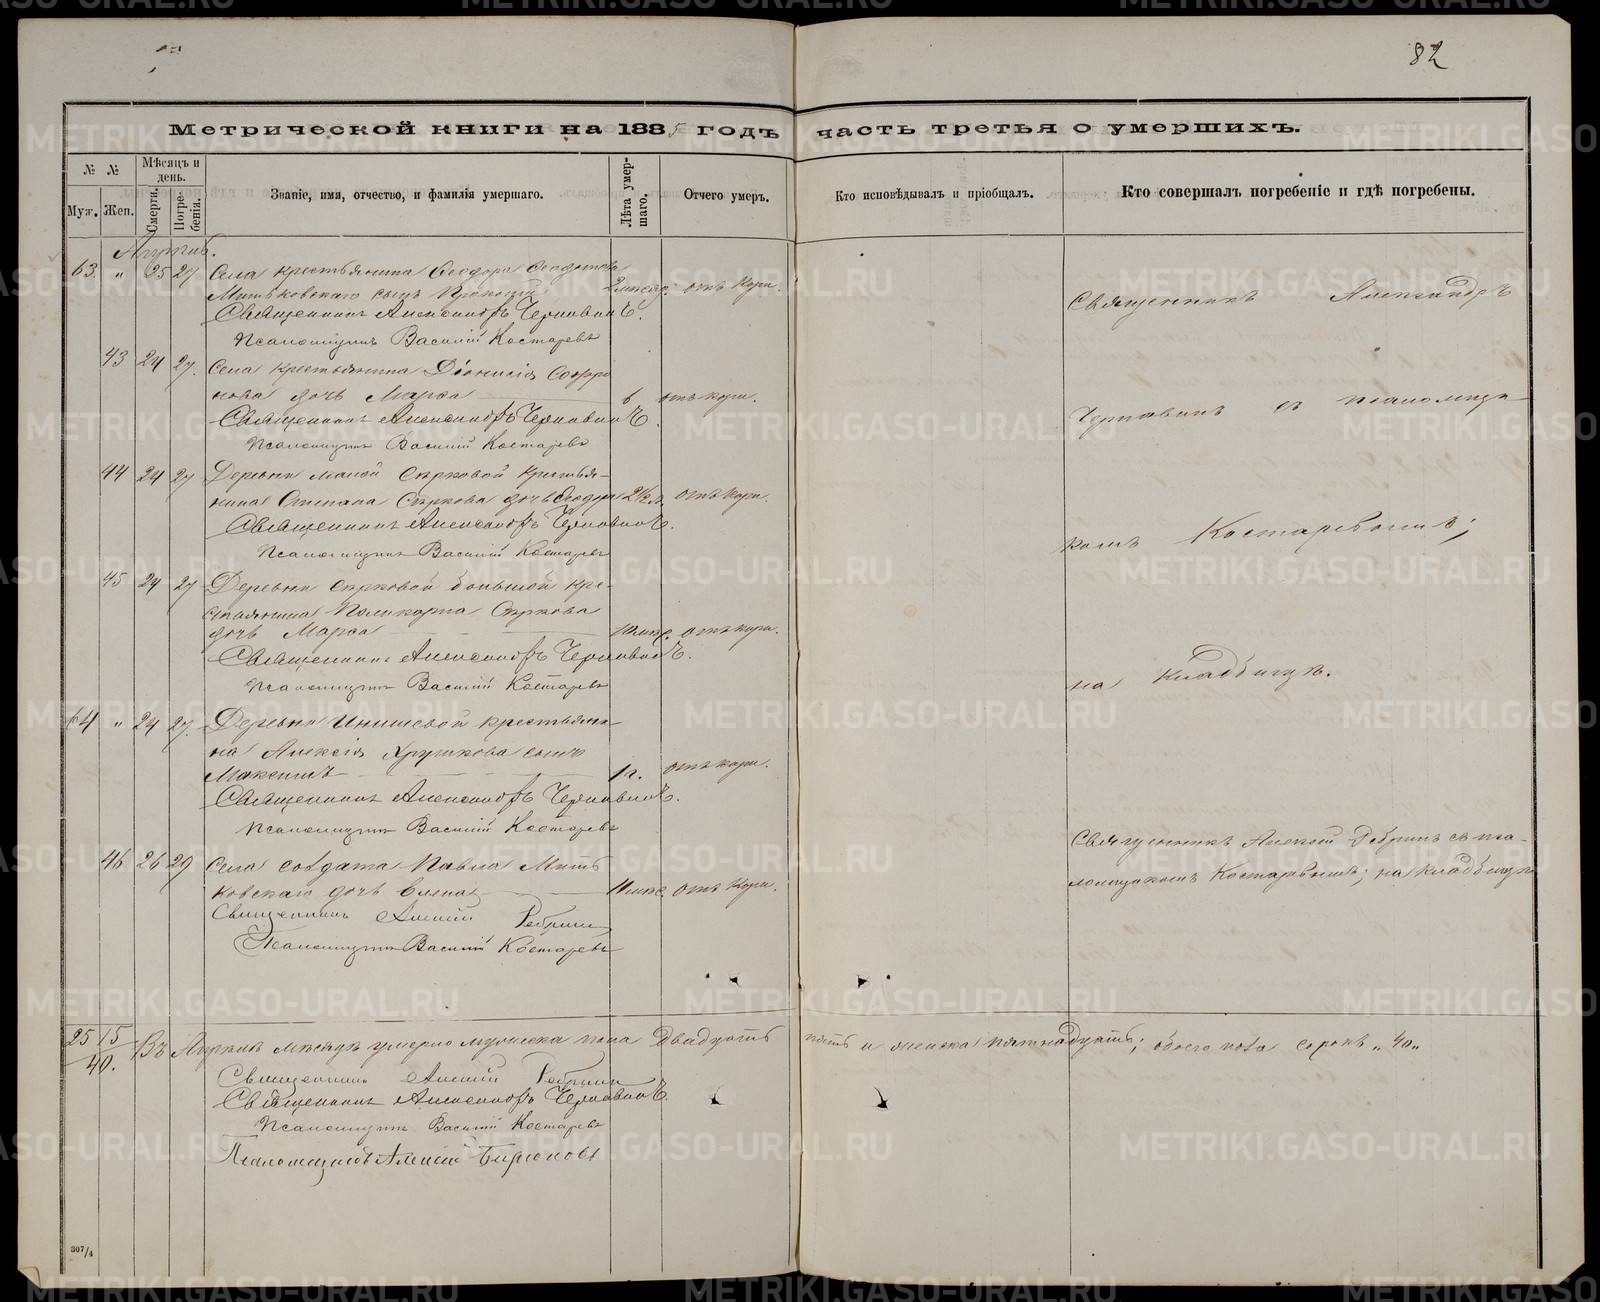 82
Метрической книги на 1885 годъ часть третья о умершихъ.
№ № Мѣсяцъ и день. Званіе, имя, отчество, и фамилія умершаго. Лѣта умершаго. Отчего умеръ. Кто исповѣдывалъ и пріобщалъ. Кто совершалъ погребеніе и гдѣ погребены.
Муж. Жен. Смерти. Погребенія.
63. " 25 27 Села крестьянина Ѳеодора
Митьковскаго сынъ Прокопій 2 месяц. отъ кори.
Священникъ Александръ Чернавинъ.
Псаломщикъ Василій Костаревъ
43 24 27. Села крестьянина Діонисія Софро
нова дочь Марѳа 6 отъ кори.
Священникъ Александръ Чернавинъ.
Псаломщикъ Василій Костаревъ
44 24 27 Деревни малой Серковой крестья-
нина Степана Серкова дочь Ѳеодора 2½ л. отъ кори.
Священникъ Александръ Чернавинъ.
Псаломщикъ Василій Костаревъ
45 24 27 Деревни Серковой большой кре-
стьянина Поликарпа Серкова
дочь Марѳа 10 мес. отъ кори.
Священникъ Александръ Чернавинъ.
Псаломщикъ Василій Костаревъ
64 " 24 27. Деревни крестьяни-
на Алексія Хрушкова сынъ
Максимъ 1 г. отъ кори.
Священникъ Александръ Чернавинъ.
Псаломщикъ Василій Костаревъ
46 26 29 Села солдата Павла Мить
ковскаго дочь Елена 11 мес. отъ кори.
Священникъ Алексій Ребринъ
Псаломщикъ Василій Костаревъ
Священникъ Александръ
Чернавинъ съ псаломщи-
комъ Костаревымъ;
на кладбищѣ.
Священникъ Алексій Ребринъ съ пса-
ломщикомъ Костаревымъ; на кладбищѣ
25 15 Въ Апрѣлѣ мѣсяцѣ умерло мужеска пола двадцать пять и женска пятнадцать; обоего пола сорокъ „40„
40.
Священникъ Алексій Ребринъ
Священникъ Александръ Чернавинъ.
Псаломщикъ Василій Костаревъ
Псаломщикъ Алексій Бирюковъ
307/4
METRIKI.GASO-URAL.RU